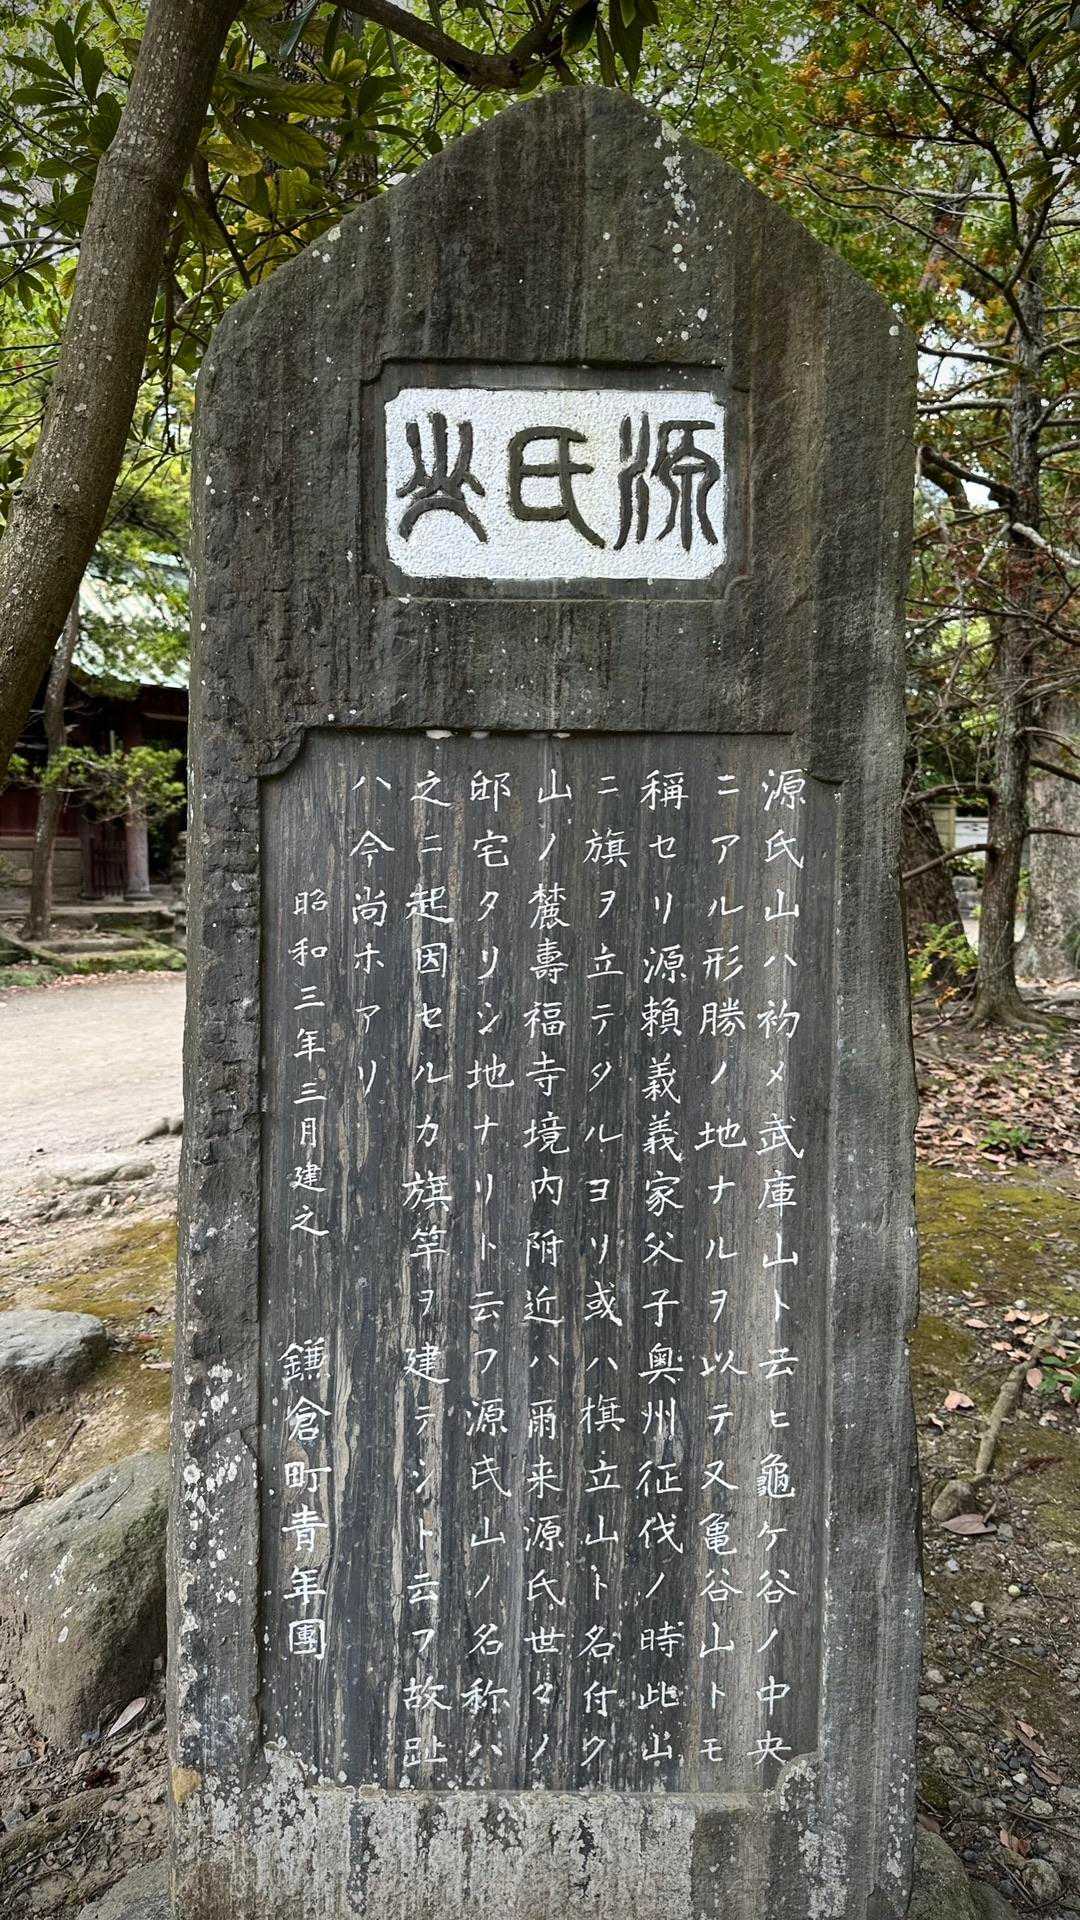 源氏山
源氏山ハ初メ武庫山ト云ヒ龜ケ谷ノ中央
ニアル形勝ノ地ナルヲ以テ又亀谷山トモ
稱セリ源頼義義家父子奥州征伐ノ時此山
ニ旗ヲ立テタルヨリ或ハ旗立山ト名付ク
山ノ麓壽福寺境内附近ハ爾来源氏世々ノ
邸宅タリシ地ナリト云フ源氏山ノ名称ハ
之ニ起因セルカ旗竿ヲ建テシト云フ故趾
ハ今尚ホアリ
昭和三年三月建之 鎌倉町青年團